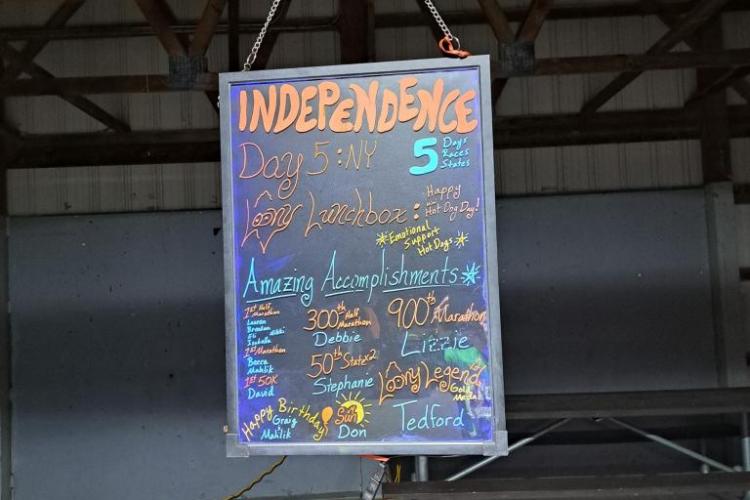 INDEPENDENCE
Day 5 : NY
5 Days
Races
States
Loony Lunchbox : Happy
Hot Dog Day!
Emotional
Support
Hot Dogs
Amazing Accomplishments
1st Half
Marathon
Lauren
Brendan
Eli
Isabella
1st Marathon
Becca
Mahlik
1st 50K
David
300th Half
Marathon
Debbie
50th State x2
Stephanie
900th Marathon
Lizzie
Loony Legend
Gold
Medal
Tedford
Happy Birthday
Craig
Mahlik
Sun
Don